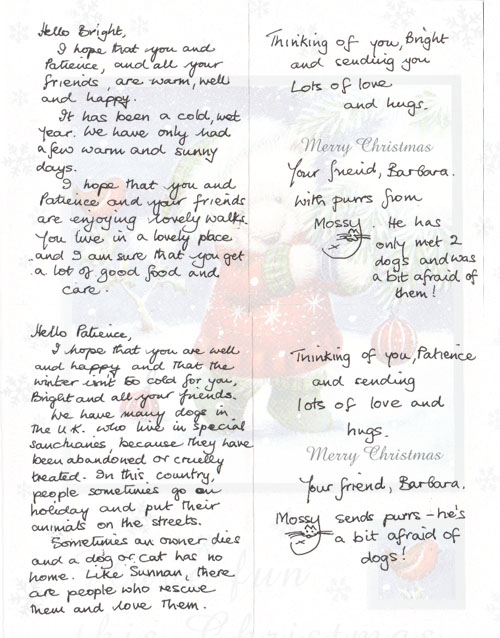 Hello Bright,
I hope that you and
Patience, and all your
friends, are warm, well
and happy.
It has been a cold, wet
year. We have only had
a few warm and sunny
days.
I hope that you and
Patience and your friends
are enjoying lovely walks.
You live in a lovely place
and I am sure that you get
a lot of good food and
care.
Thinking of you, Bright
and sending you
Lots of love
and hugs.
Merry Christmas
Your friend, Barbara.
with purrs from
Mossy. He has
only met 2
dogs and was
a bit afraid of
them!
Hello Patience,
I hope that you are well
and happy and that the
winter isn't so cold for you,
Bright and all your friends.
We have many dogs in
the U.K. who live in special
sanctuaries, because they have
been abandoned or cruelly
treated. In this country,
people sometimes go on
holiday and put their
animals on the streets.
Sometimes an owner dies
and a dog or cat has no
home. Like Sunnan, there
are people who rescue
them and love them.
Thinking of you, Patience
and sending
lots of love and
hugs.
Merry Christmas
Your friend, Barbara.
Mossy sends purrs – he's
a bit afraid of
dogs!
fun
this Christmas